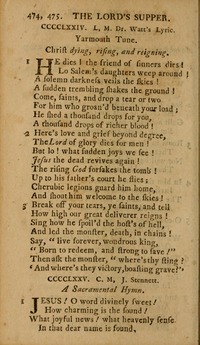 474, 475. THE LORD'S SUPPER.
CCCCLXXIV. L. M. Dr. Watt's Lyric.
Yarmouth Tune.
Christ dying, rising, and reigning.
1 HE dies! the friend of sinners dies!
Lo Salem's daughters weep around!
A solemn darkness veils the skies!
A sudden trembling shakes the ground!
Come, saints, and drop a tear or two
For him who groan'd beneath your load;
He shed a thousand drops for you,
A thousand drops of richer blood!
2 Here's love and grief beyond degree,
The Lord of glory dies for men!
But lo! what sudden joys we see!
Jesus the dead revives again!
The rising God forsakes the tomb!
Up to his father's court he flies;
Cherubic legions guard him home,
And shout him welcome to the skies!
3 Break off your tears, ye saints, and tell
How high our great deliverer reigns!
Sing how he spoil'd the host's of hell,
And led the monster, death, in chains!
Say, "live forever, wondrous king,
"Born to redeem, and strong to save!"
Then ask the monster, "where's thy sting?
"And where's thy victory, boasting grave?"
CCCCLXXV. C. M. J. Stennett.
A Sacramental Hymn.
1 JESUS! O word divinely sweet!
How charming is the sound!
What joyful news! what heavenly sense
In that dear name is found.